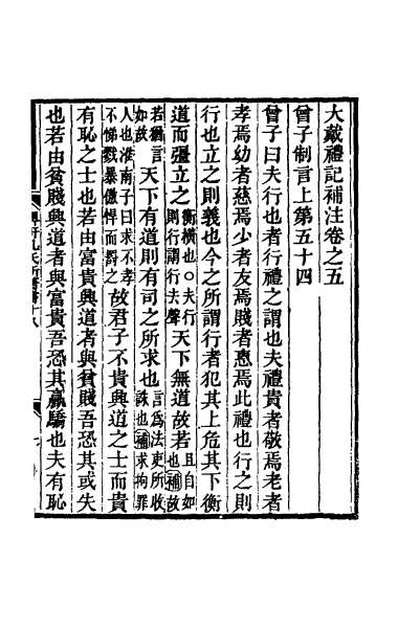 大戴禮記補注卷之五
曾子制言上第五十四
曾子曰夫行也者行禮之謂也夫禮貴者敬焉老者
孝焉幼者慈焉少者友焉賤者惠焉此禮也行之則
行也立之則義也今之所謂行者犯其上危其下衡
道而彊立之衡橫也○夫行則行謂行去聲天下無道故若且自如也補故
若猶言如故天下有道則有司之所求也言為法吏所收誅也補求拘罪
人也淮南子曰求不孝不悌戮暴傲悍而罰之故君子不貴興道之士而貴
有恥之士也若由富貴興道者與貧賤吾恐其或失
也若由貧賤興道者與富貴吾恐其贏驕也夫有恥